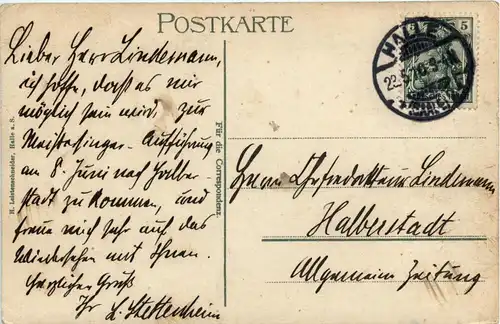 POSTKARTE
5
HALLE
(SAALE)
Lieber Herr Lindemann,
ich hoffe, dass es mir
möglich sein wird, zur
Meistersinger-Aufführung
am 8. Juni nach Halber-
stadt zu kommen, und
freue mich sehr auf das
Wiedersehen mit Ihnen.
Herzlicher Gruß
Ihr L. Stettenheim
Für die Correspondenz.
H. Leistenschneider, Halle a. S.
Herrn Chefredakteur Lindemann
Halberstadt
Allgemeine Zeitung